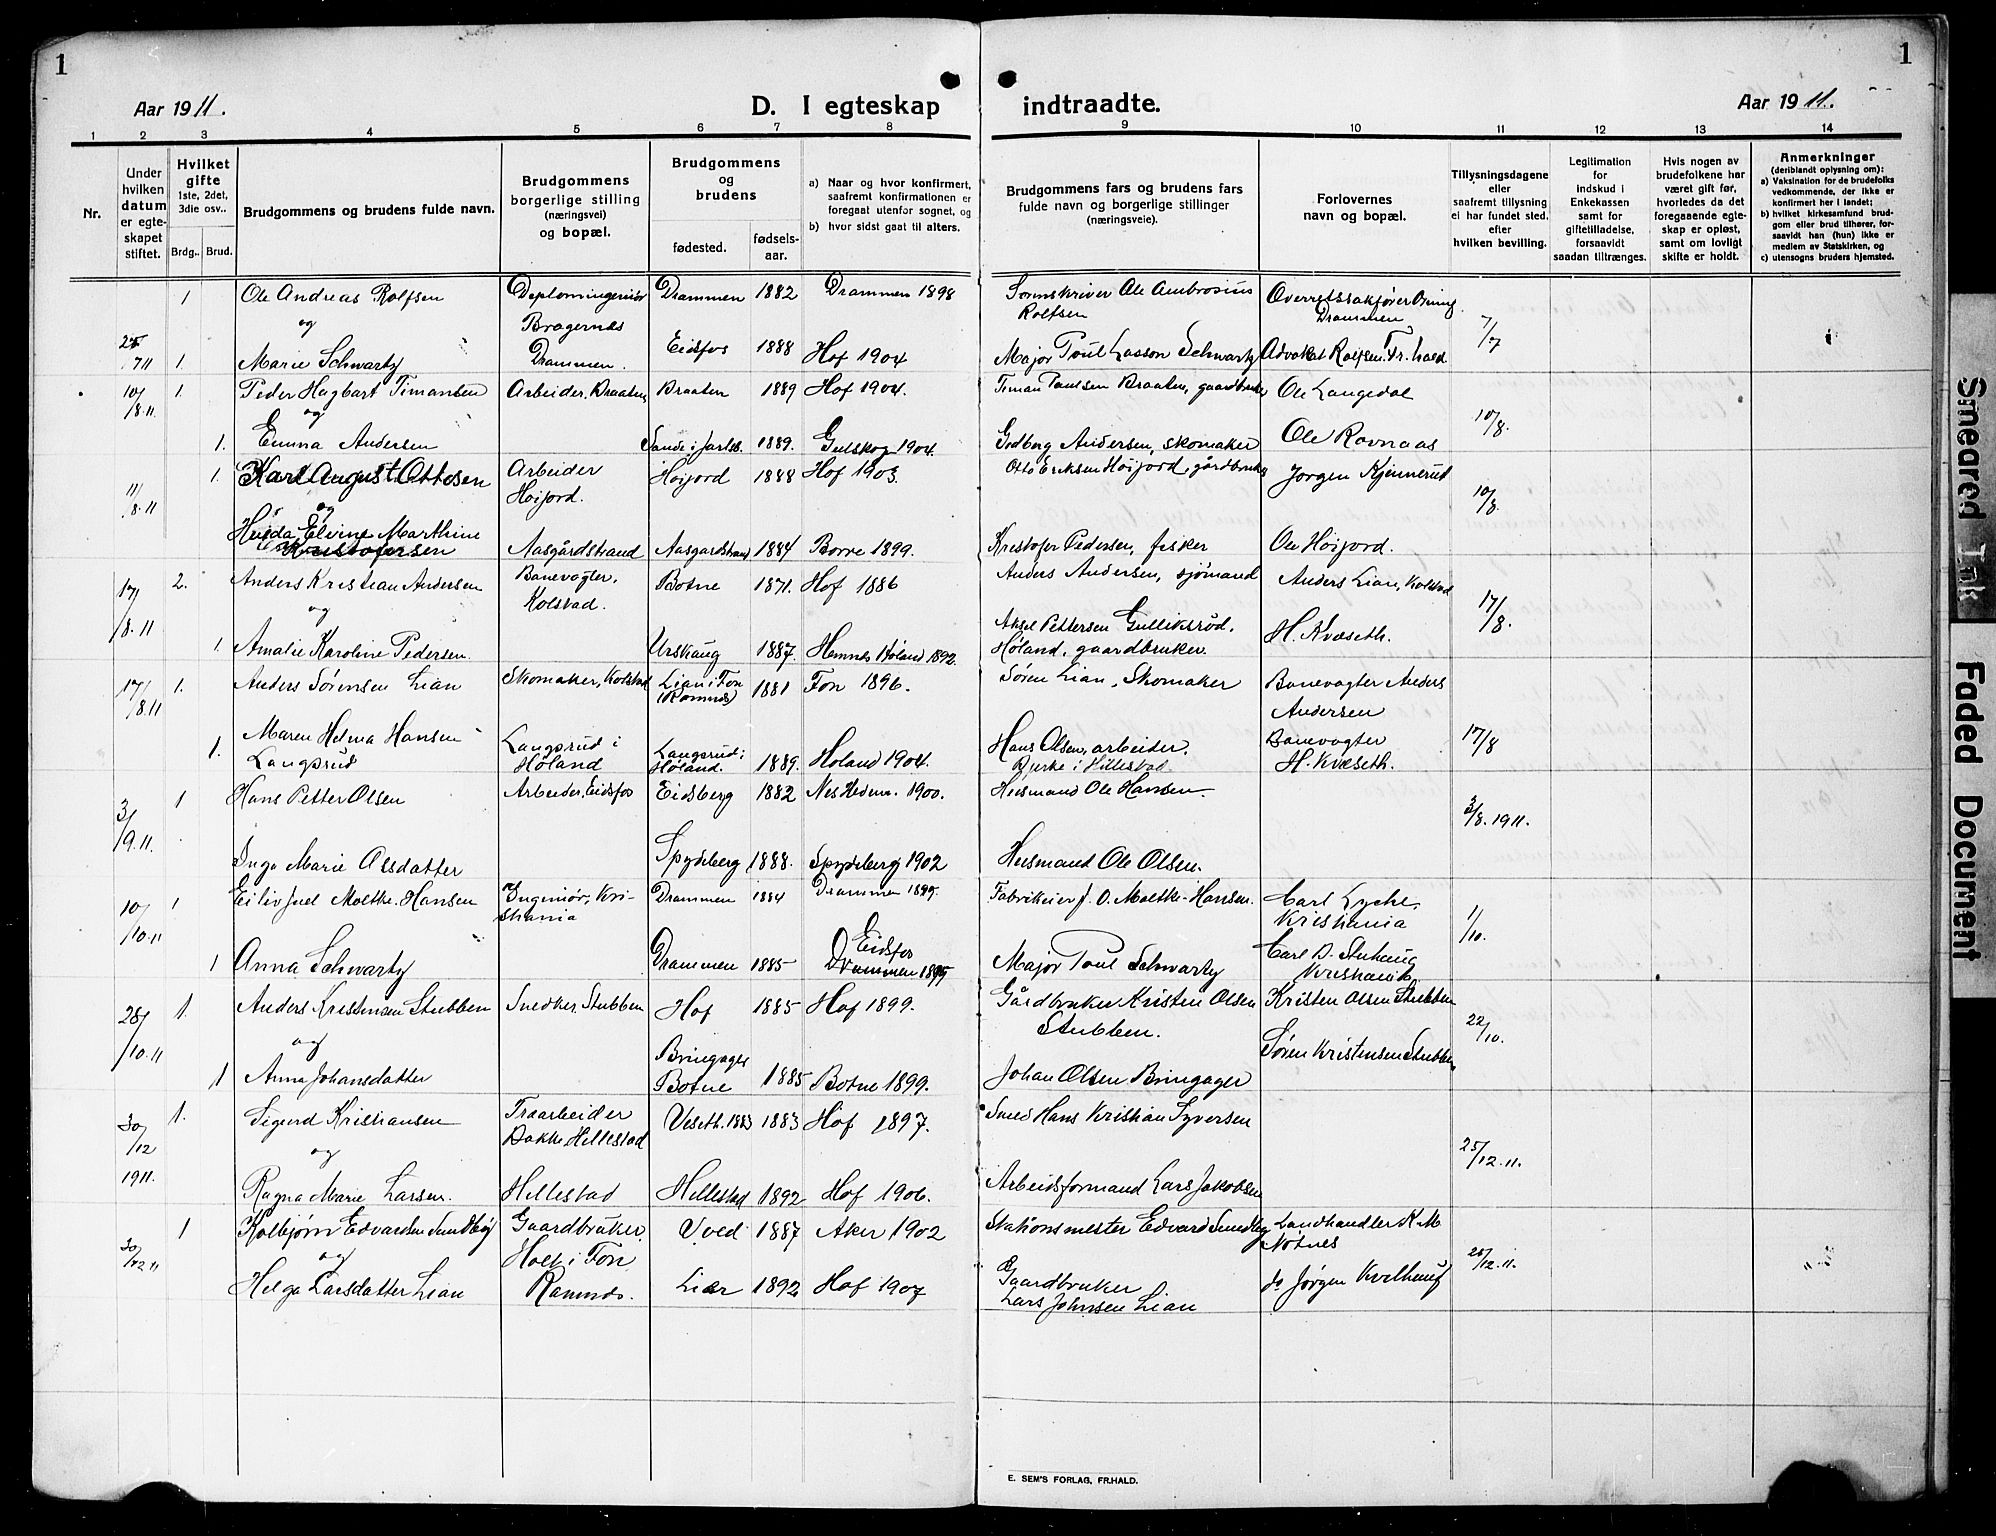 1
1
Aar 1911.
D. I egteskap
indtraadte.
Aar 1911.
1 2 3 4 5 6 7 8 9 10 11 12 13 14
Nr.
Under hvilken datum er egte-skapet stiftet.
Hvilket gifte
1ste, 2det, 3die osv..
Brdg.. Brud.
Brudgommens og brudens fulde navn.
Brudgommens borgerlige stilling (næringsvei) og bopæl.
Brudgommens og brudens
fødested.
fødsels-aar.
a) Naar og hvor konfirmert, saafremt konfirmationen er foregaat utenfor sognet, og
b) hvor sidst gaat til alters.
Brudgommens fars og brudens fars fulde navn og borgerlige stillinger (næringsveie).
Forlovernes navn og bopæl.
Tillysningsdagene eller saafremt tillysning ei har fundet sted. efter hvilken bevilling.
Legitimation for indskud i Enkekassen samt for giftetilladelse, forsaavidt saadan tiltrænges.
Hvis nogen av brudefolkene har været gift før, hvorledes da det foregaaende egte-skap er opløst, samt om lovligt skifte er holdt.
Anmerkninger
(deriblandt oplysning om):
a) Vaksination for de brudefolks vedkommende, der ikke er konfirmert her i landet;
b) hvilket kirkesamfund brud-gom eller brud tilhører, for-saavidt han (hun) ikke er medlem av Statskirken, og
c) utensogns bruders hjemsted.
1 Ole Andreas Rolfsen Drammen 1882 Drammen 1898 Sorenskriver Ole Ambrosius Rolfsen
og Bragernes Drammen
7/7
7 11 1. Marie Schwartz Drammen. Eidsfos 1888 Hof 1904 Major Poul Lasson Schwartz Advokat Rolfsen. Fr.hald
10/8.11 1. Peder Hagbart Timansen Arbeider. Braaten Braaten 1889 Hof 1904. Timan Paulsen Braaten, gaardbruker Ole Langedal
og 10/8.
1. Emma Andersen Sande i Jarlsb. 1889. Gulskog 1904. Godberg Andersen, skomaker Ole Ravnaas
11/8.11 1. Karl August Ottesen Arbeider Høijord. Høijord 1888 Hof 1903. Otto Eriksen Høijord, gårdbruker Jørgen Kjennerud
og 10/8.
Hulda Elvine Marthine Kristofersen Aasgårdstrand Aasgardstrand 1884 Borre 1899. Kristofer Pedersen, fisker Ole Høijord.
17/8.11 2. Anders Kristian Andersen Banevogter, Kolstad. Botne 1871. Hof 1886 Anders Andersen, sjømand Anders Lian, Kolstad
og 17/8.
1. Amalie Karoline Pedersen. Urskaug 1887. Hemnes Høland 1892. Aksel Pettersen Gulliksrud. Høland, gaardbruker. H. Kvæseth.
17/8.11 1. Anders Sørensen Lian Skomaker, Kolstad Lian i Fon (Ramnes) 1881 Fon 1896. Søren Lian, Skomaker Banevogter Anders Andersen
1. Maren Helma Hansen Langsrud Langsrud i Høland Langsrud i Høland. 1889. Høland 1904. Hans Olsen, arbeider. Bjerke i Hillestad. Banevogter H. Kvæseth. 17/8
3/9.11. 1 Hans Petter Olsen Arbeider, Eidsfos Eidsberg 1882 Nes Hedem. 1900. Husmand Ole Hansen.
3/8. 1911.
Inga Marie Olsdatter Spydeberg 1888. Spydeberg 1902 Husmand Ole Olsen.
10/10.11 1 Eiliv Juel Moltke-Hansen Ingeniør, Kri-stiania Drammen 1884 Drammen 1899. Fabrikeier J. O. Moltke-Hansen. Carl Lyche, Kristiania 1/10.
1 Anna Schwartz Drammen 1885 Eidsfos Drammen Major Poul Schwartz Carl D. Kristiania
28/10.11 1. Anders Kristensen Stubben Snedker, Stubben Hof 1885 Hof 1899. Gårdbruker Kristen Olsen Stubben. Kristen Olsen Stubben
og 22/10.
1 Anna Johansdatter Bringager Botne 1885 Botne 1899. Johan Olsen Bringager Søren Kristensen Stubben
30/12 1911. 1. Sigurd Kristiansen Træarbeider Bakke, Hillestad Veseth. 1883 1883 Hof 1897. Smed Hans Kristian Syversen
og 25/12.11.
Ragna Marie Larsen. Hillestad Hillestad 1892 Hof 1906. Arbeidsformand Lars Jakobsen
30/12 11 1 Kolbjørn Edvardsen Sundby Gaardbruker. Holt i Fon Ramnes. 1887 Aker 1902 Stationsmester Edvard Sundby Landhandler K. M. Nøtnes
og 26/12.11.
Helga Larsdatter Lian Lier 1892 Hof 1907 Gaardbruker Lars Johnsen Lian do Jørgen
E. SEM'S FORLAG, FR.HALD.
Smeared Ink
Faded Document